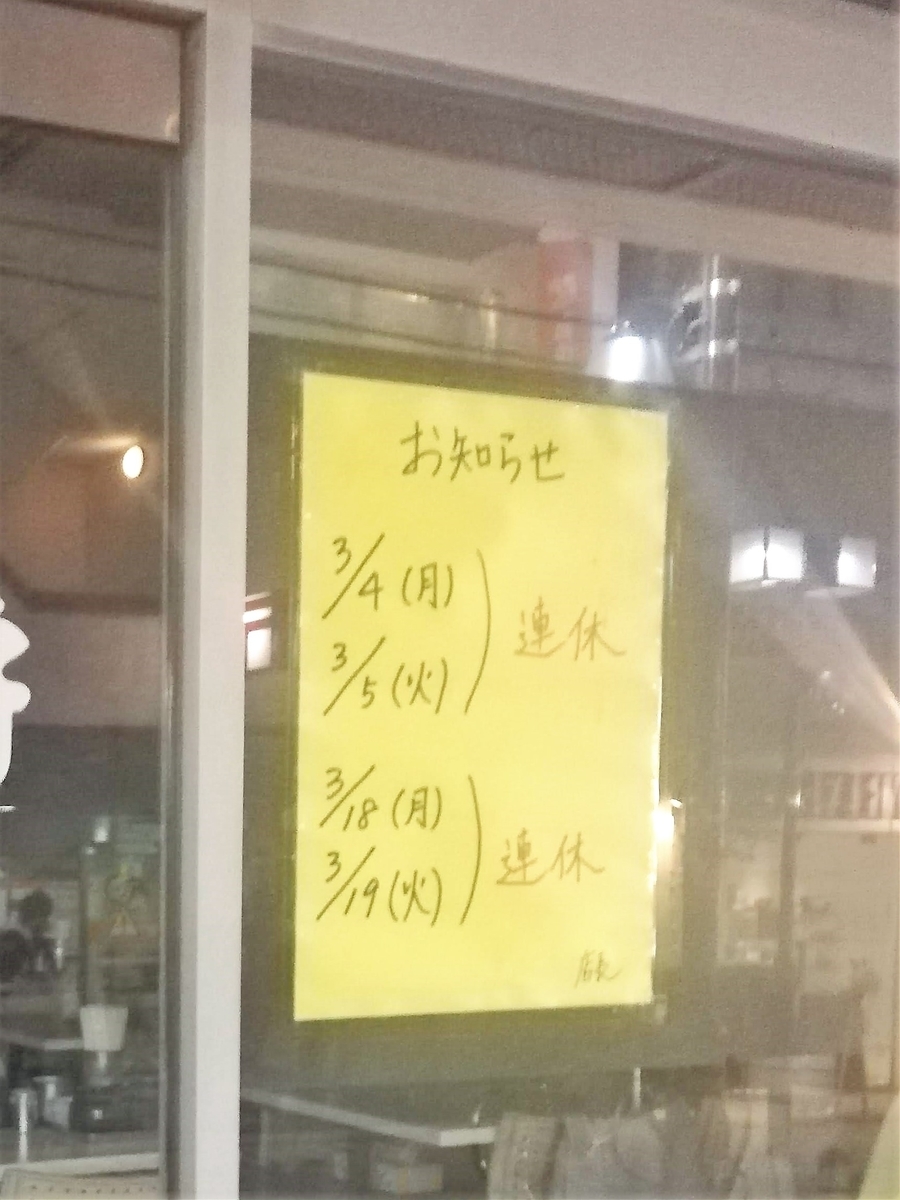 お知らせ
3/4(月)
連休
3/5(火)
3/18(月)
連休
3/19(火)
店長